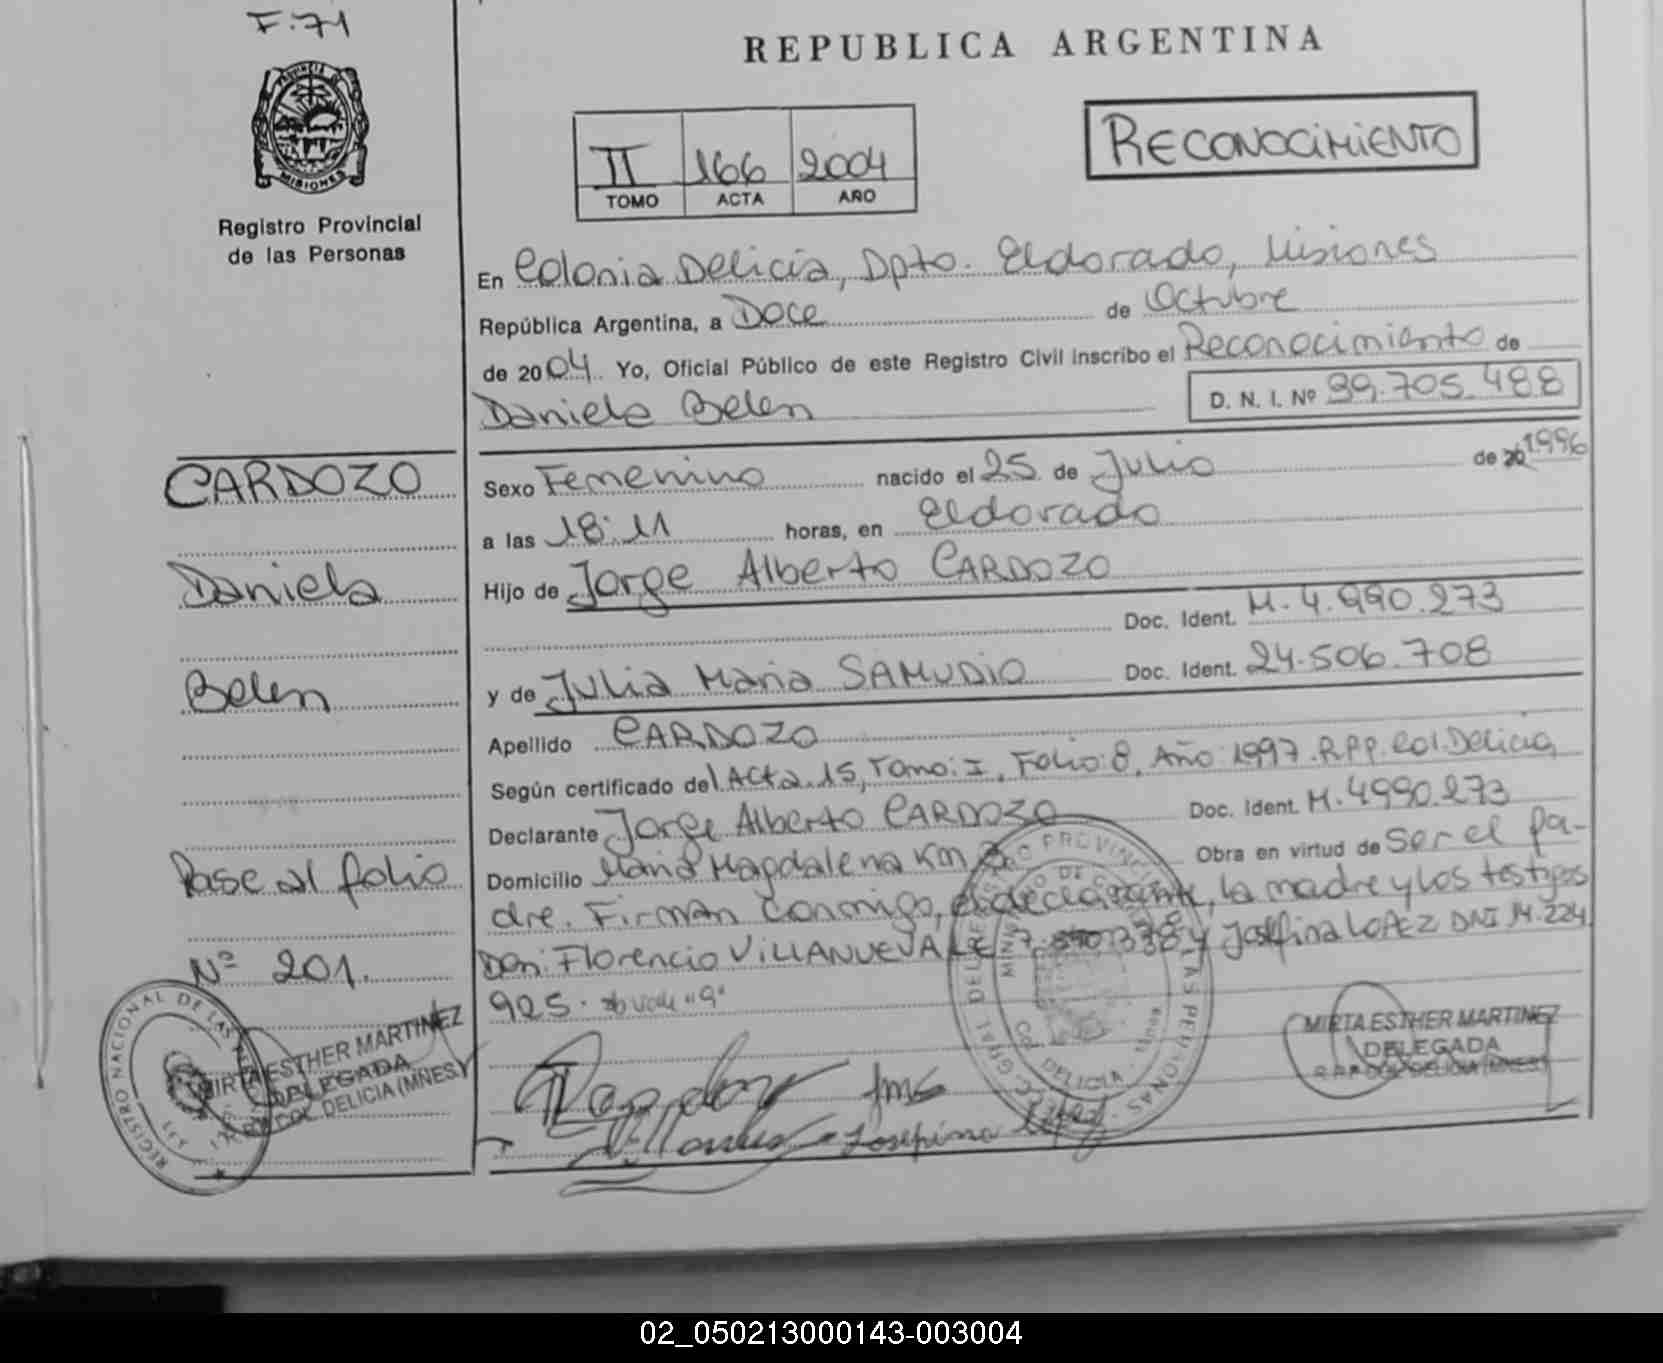 F. 71
REPUBLICA ARGENTINA
PROVINCIA DE
MISIONES
Registro Provincial
de las Personas
II 166 2004
TOMO ACTA AÑO
RECONOCIMIENTO
En Colonia Delicia, Dpto. Eldorado, Misiones
República Argentina, a Doce de Octubre
de 2004. Yo, Oficial Público de este Registro Civil inscribo el Reconocimiento de
Daniela Belen D. N. I. Nº 39.705.488
CARDOZO
Sexo Femenino nacido el 25 de Julio de 20 1996
a las 18:11 horas, en Eldorado
Daniela
Hijo de Jorge Alberto CARDOZO
Doc. Ident. M. 4.990.273
Belen
y de Julia Maria SAMUDIO Doc. Ident. 24.506.708
Apellido CARDOZO
Según certificado del Acta 15, Tomo: I, Folio: 8, Año: 1997. R.P.P. Col. Delicia,
Declarante Jorge Alberto CARDOZO Doc. Ident. M. 4990.273
Pase al folio
Domicilio Maria Magdalena Km Obra en virtud de Ser el pa-
dre. Firman conmigo, el declarante, la madre y los testigos
Nº 201.
Don: Florencio VILLANUEVA LE 7. 378 y Josefina LOPEZ DNI 14.224
925. vale "9"
REGISTRO NACIONAL DE LAS
MIRTA ESTHER MARTINEZ
DELEGADA
R.P.P. COL. DELICIA (MNES)
PROVINCIAL
DE LAS PERSONAS
COL. DELICIA
MIRTA ESTHER MARTINEZ
DELEGADA
R.P.P. COL. DELICIA (MNES)
Cardozo JMS
Villanueva Josefina Lopez
02_050213000143-003004